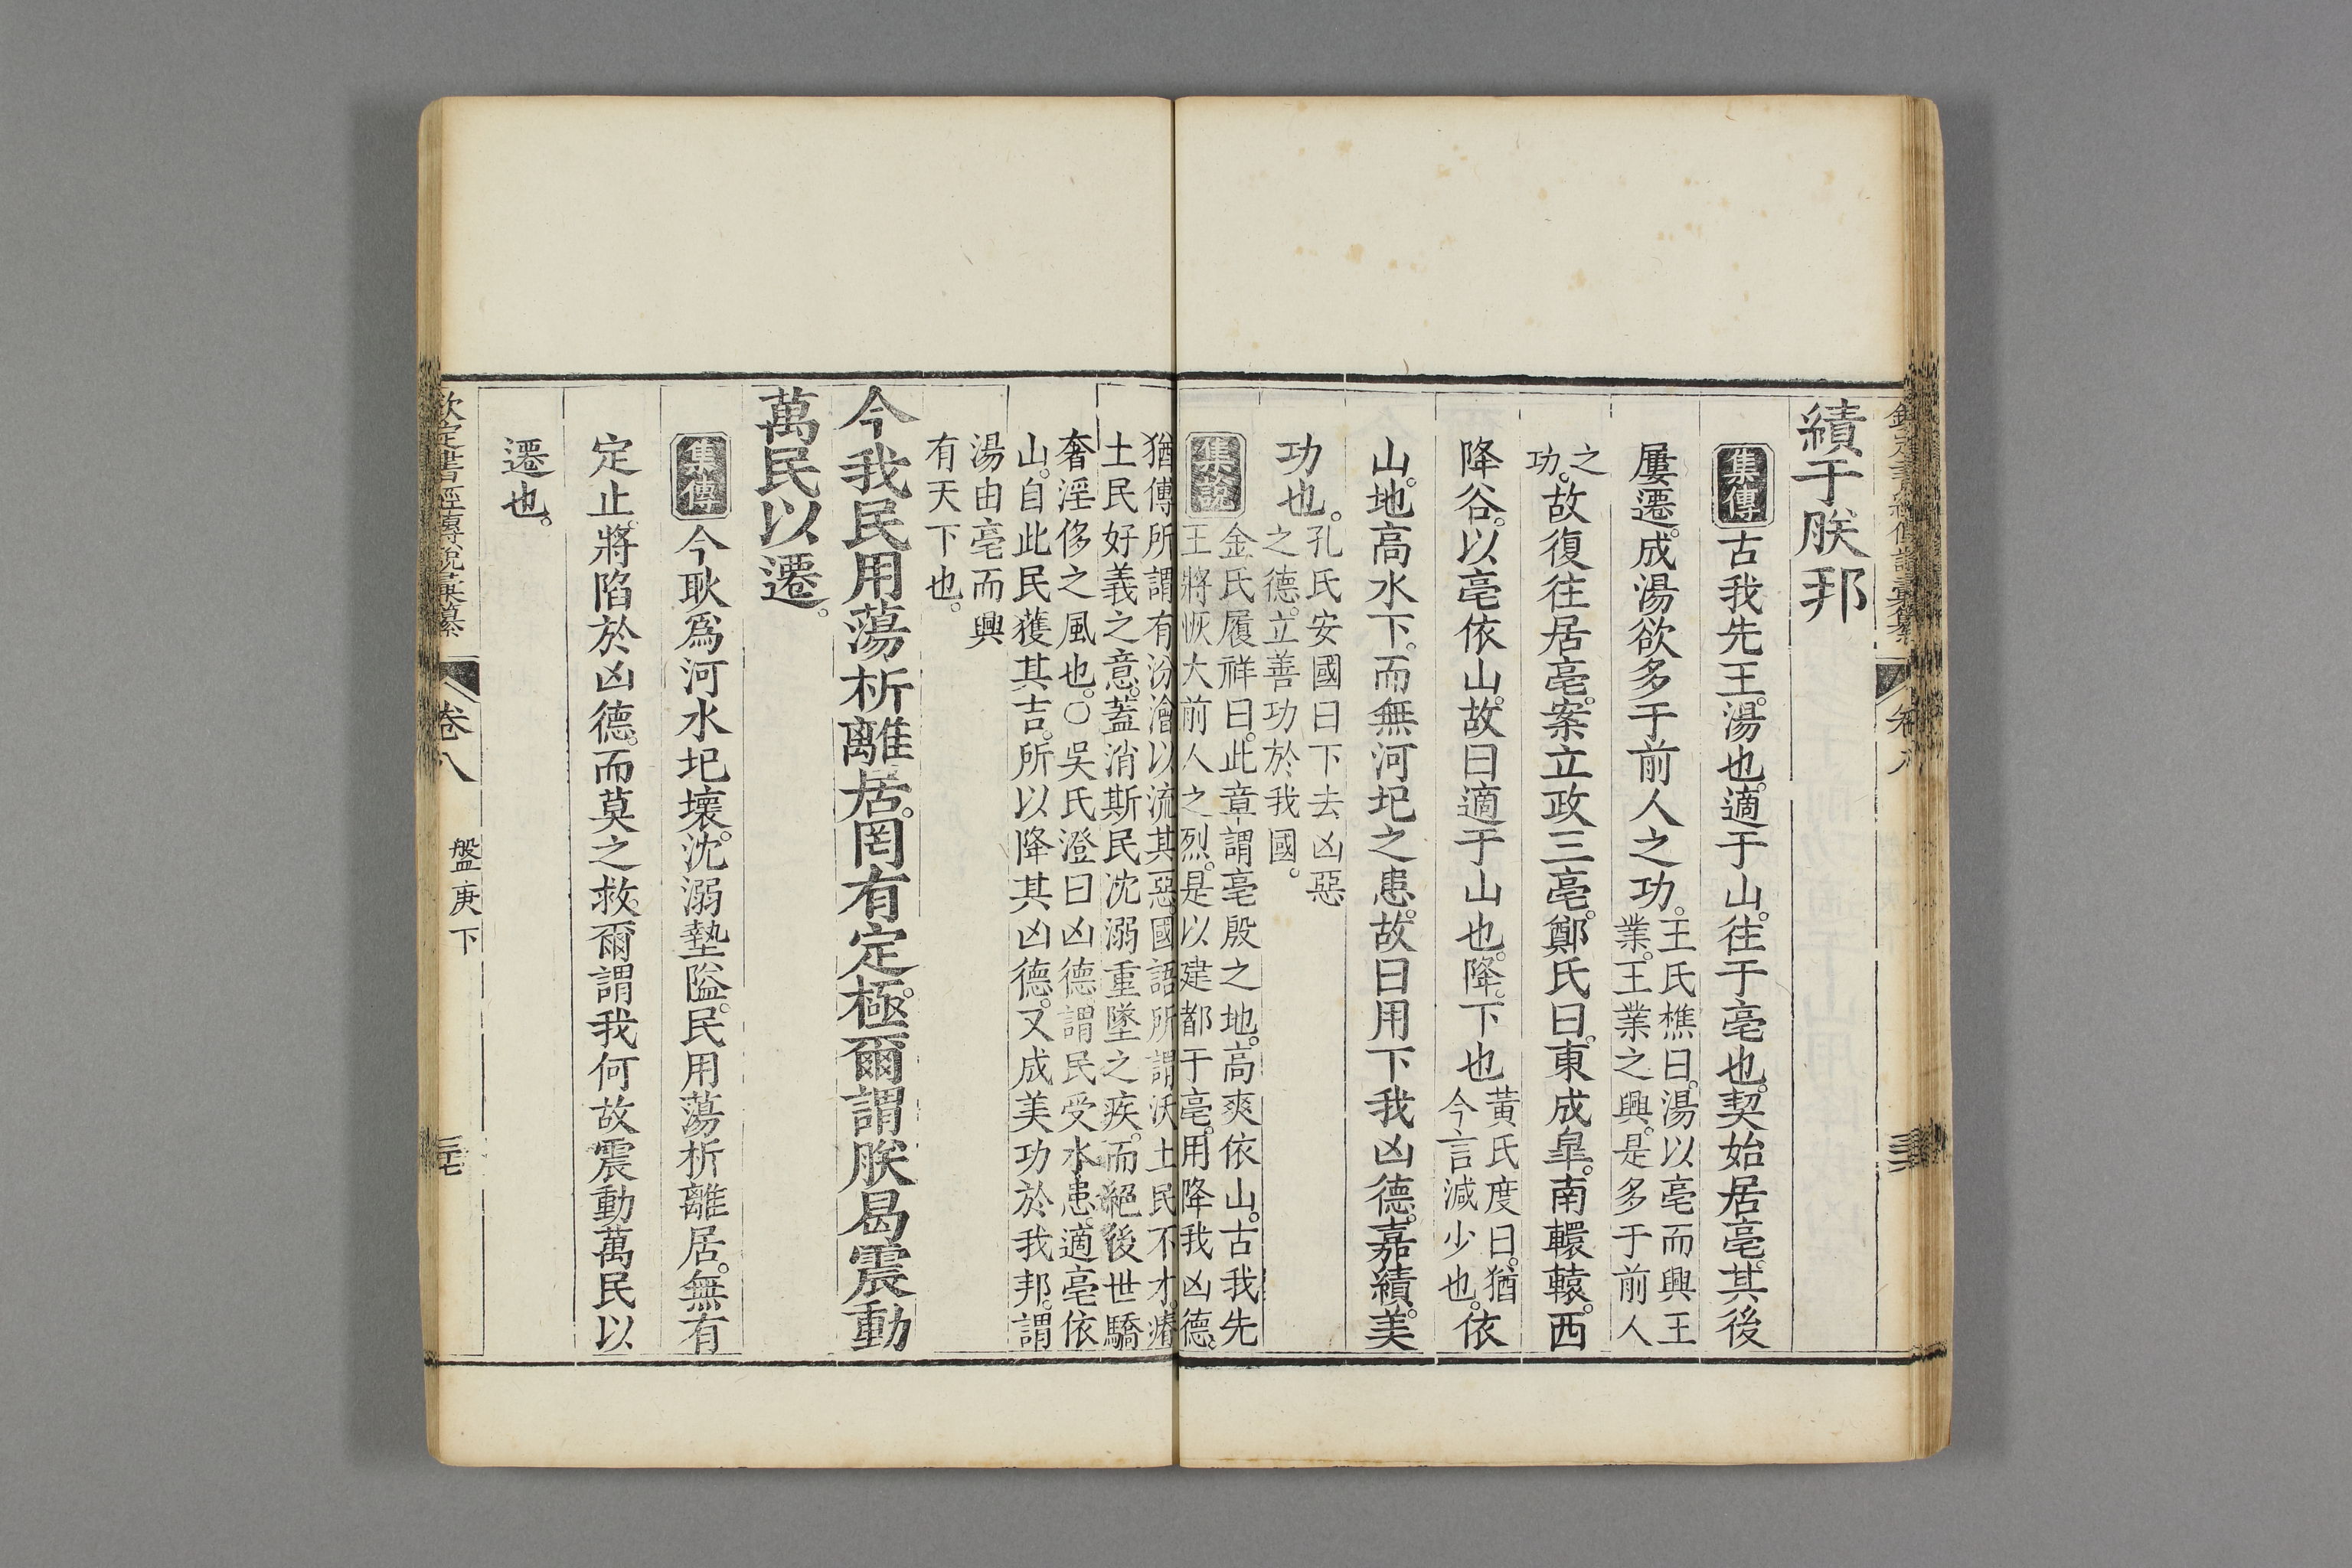 績于朕邦
集傳 古我先王。湯也。適于山。往于亳也。契始居亳。其後
屢遷。成湯欲多于前人之功。王氏樵曰。湯以亳而興王
業。王業之興。是多于前人
之
功。故復往居亳。案立政三亳。鄭氏曰。東成皐。南轘轅。西
降谷。以亳依山。故曰適于山也。降。下也黃氏度曰。猶
今言減少也。依
山。地高水下。而無河圮之患。故曰用下我凶德。嘉績。美
功也。孔氏安國曰下去凶惡
之德。立善功於我國。
集說 金氏履祥曰。此章謂亳殷之地。高爽依山。古我先
王將恢大前人之烈。是以建都于亳。用降我凶德。
猶傳所謂有汾澮以流其惡。國語所謂沃土民不才。瘠
土民好義之意。蓋消斯民沈溺重墜之疾。而絕後世驕
奢淫侈之風也。○吳氏澄曰凶德。謂民受水患。適亳依
山。自此民獲其吉。所以降其凶德。又成美功於我邦。謂
湯由亳而興
有天下也。
今我民用蕩析離居。罔有定極。爾謂朕曷震動
萬民以遷。
集傳 今耿爲河水圮壞。沈溺墊隘。民用蕩析離居。無有
定止。將陷於凶德。而莫之救。爾謂我何故震動萬民以
遷也。
欽定書經傳說彙纂 卷八 盤庚下 三七